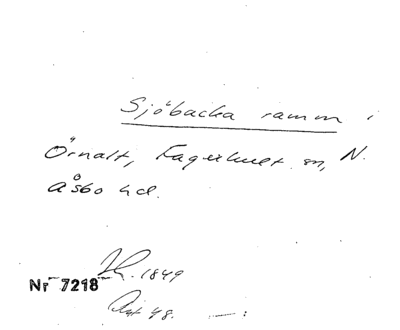 Sjöbacka namn i
Örnalt, Fagerhult sn, N.
Åsbo hd.
Nr 7218
1849
48. —: